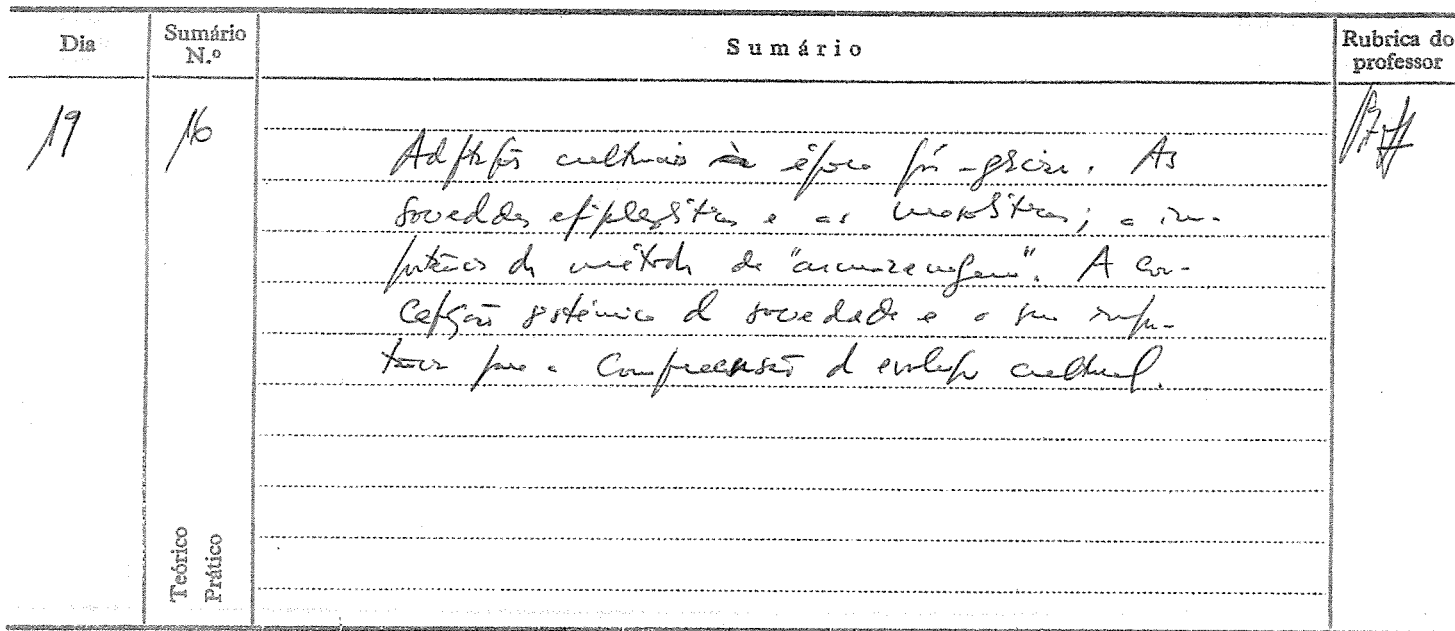 Dia
Sumário N.º
Sumário
Rubrica do professor
19
16
Adaptações culturais à época pós-glaciar. As
sociedades epipaleolíticas e as mesolíticas; a im-
portância do método de "armazenagem". A con-
cepção sistémica da sociedade e a sua impor-
tância para a compreensão da evolução cultural.
Teórico
Prático